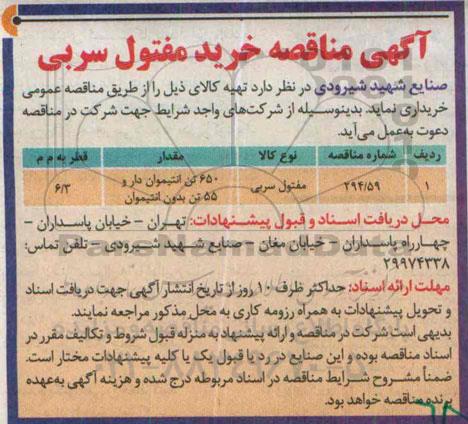 آگهی مناقصه خرید مفتول سربی
صنایع شهید شیرودی در نظر دارد تهیه کالای ذیل را از طریق مناقصه عمومی
خریداری نماید. بدینوسیله از شرکت‌های واجد شرایط جهت شرکت در مناقصه
دعوت به‌عمل می‌آید.
ردیف شماره مناقصه نوع کالا مقدار قطر به م م
۱ ۲۹۴/۵۹ مفتول سربی ۶۵۰ تن انتیموان دار و ۶/۳
۵۵ تن بدون انتیموان
محل دریافت اسناد و قبول پیشنهادات: تهران – خیابان پاسداران –
چهارراه پاسداران – خیابان مغان – صنایع شهید شیرودی – تلفن تماس:
۲۹۹۷۴۳۳۸
مهلت ارائه اسناد: حداکثر ظرف ۱۰ روز از تاریخ انتشار آگهی جهت دریافت اسناد
و تحویل پیشنهادات به همراه رزومه کاری به محل مذکور مراجعه نمایند.
بدیهی است شرکت در مناقصه و ارائه پیشنهاد به منزله قبول شروط و تکالیف مقرر در
اسناد مناقصه بوده و این صنایع در رد یا قبول یک یا کلیه پیشنهادات مختار است.
ضمناً مشروح شرایط مناقصه در اسناد مربوطه درج شده و هزینه آگهی به‌عهده
برنده مناقصه خواهد بود.